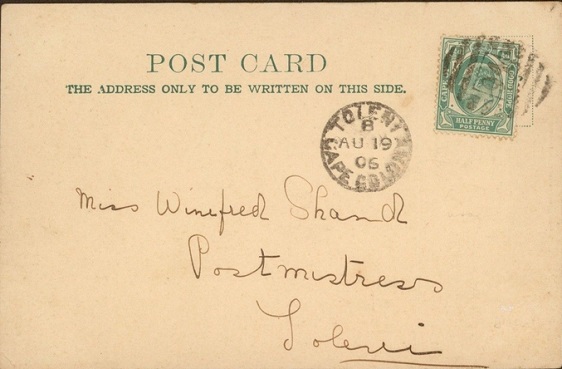 POST CARD
THE ADDRESS ONLY TO BE WRITTEN ON THIS SIDE.
CAPE
GOOD HOPE
HALFPENNY
POSTAGE
TOLENI
B
AU 19
06
CAPE COLONY
Miss Winifred Shand
Postmistress
Toleni